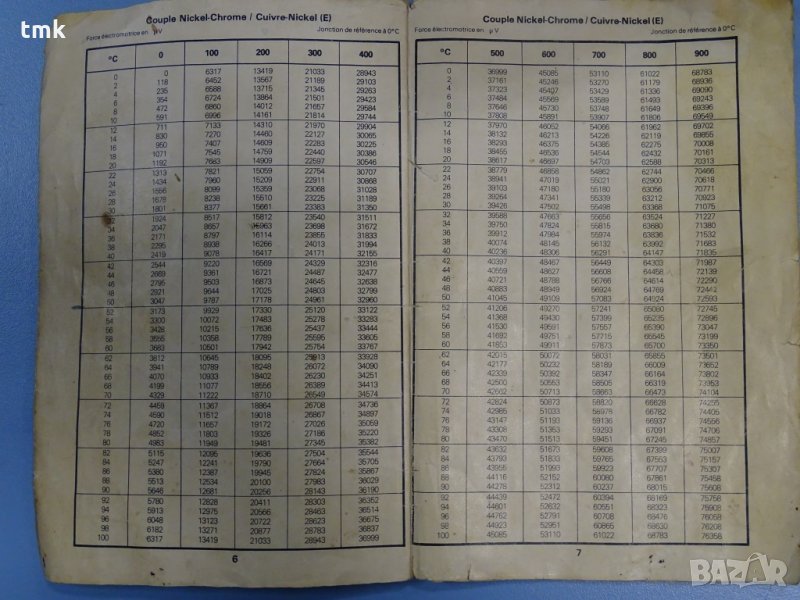 tmk
Couple Nickel-Chrome / Cuivre-Nickel (E)
Force électromotrice en μV Jonction de référence à 0°C
°C 0 100 200 300 400
0 0 6317 13419 21033 28943
2 118 6452 13567 21189 29103
4 235 6588 13715 21345 29263
6 354 6724 13864 21501 29423
8 472 6860 14012 21657 29584
10 591 6996 14161 21814 29744
12 711 7133 14310 21970 29904
14 830 7270 14460 22127 30065
16 950 7407 14609 22283 30225
18 1071 7545 14759 22440 30386
20 1192 7683 14909 22597 30546
22 1313 7821 15059 22754 30707
24 1434 7960 15209 22911 30868
26 1556 8099 15359 23068 31028
28 1678 8238 15510 23225 31189
30 1801 8377 15661 23383 31350
32 1924 8517 15812 23540 31511
34 2047 8657 15963 23698 31672
36 2171 8797 16114 23855 31833
38 2295 8938 16266 24013 31994
40 2419 9078 16417 24171 32155
42 2544 9220 16569 24329 32316
44 2669 9361 16721 24487 32477
46 2795 9503 16873 24645 32638
48 2921 9644 17025 24803 32799
50 3047 9787 17178 24961 32960
52 3173 9929 17330 25120 33122
54 3300 10072 17483 25278 33283
56 3428 10215 17636 25437 33444
58 3555 10358 17789 25595 33605
60 3683 10501 17942 25754 33767
62 3812 10645 18095 25913 33928
64 3941 10789 18248 26072 34090
66 4070 10933 18402 26230 34251
68 4199 11077 18556 26389 34413
70 4329 11222 18710 26549 34574
72 4459 11367 18864 26708 34736
74 4590 11512 19018 26867 34897
76 4720 11657 19172 27026 35059
78 4852 11803 19326 27186 35220
80 4983 11949 19481 27345 35382
82 5115 12095 19636 27504 35544
84 5247 12241 19790 27664 35705
86 5380 12387 19945 27824 35867
88 5513 12534 20100 27983 36029
90 5646 12681 20256 28143 36190
92 5780 12828 20411 28303 36352
94 5913 12975 20566 28463 36514
96 6048 13123 20722 28623 36675
98 6182 13271 20877 28783 36837
100 6317 13419 21033 28943 36999
6
Couple Nickel-Chrome / Cuivre-Nickel (E)
Force électromotrice en μV Jonction de référence à 0°C
°C 500 600 700 800 900
0 36999 45085 53110 61022 68783
2 37161 45246 53270 61179 68936
4 37323 45407 53429 61336 69090
6 37484 45569 53589 61493 69243
8 37646 45730 53748 61649 69396
10 37808 45891 53907 61806 69549
12 37970 46052 54066 61962 69702
14 38132 46213 54226 62119 69855
16 38293 46375 54385 62275 70008
18 38455 46536 54544 62432 70161
20 38617 46697 54703 62588 70313
22 38779 46858 54862 62744 70466
24 38941 47019 55021 62900 70618
26 39103 47180 55180 63056 70771
28 39264 47341 55339 63212 70923
30 39426 47502 55498 63368 71075
32 39588 47663 55656 63524 71227
34 39750 47824 55815 63680 71380
36 39912 47984 55974 63836 71532
38 40074 48145 56132 63992 71683
40 40236 48306 56291 64147 71835
42 40397 48467 56449 64303 71987
44 40559 48627 56608 64458 72139
46 40721 48788 56766 64614 72290
48 40883 48949 56924 64769 72442
50 41045 49109 57083 64924 72593
52 41206 49270 57241 65080 72745
54 41368 49430 57399 65235 72896
56 41530 49591 57557 65390 73047
58 41692 49751 57715 65545 73199
60 41853 49911 57873 65700 73350
62 42015 50072 58031 65855 73501
64 42177 50232 58189 66009 73652
66 42339 50392 58347 66164 73802
68 42500 50553 58505 66319 73953
70 42662 50713 58663 66473 74104
72 42824 50873 58820 66628 74255
74 42985 51033 58978 66782 74405
76 43147 51193 59136 66937 74556
78 43308 51353 59293 67091 74706
80 43470 51513 59451 67245 74857
82 43632 51673 59608 67399 75007
84 43793 51833 59765 67553 75157
86 43955 51993 59923 67707 75307
88 44116 52152 60080 67861 75458
90 44278 52312 60237 68015 75608
92 44439 52472 60394 68169 75758
94 44601 52632 60551 68323 75908
96 44762 52791 60708 68476 76058
98 44923 52951 60865 68630 76208
100 45085 53110 61022 68783 76358
7
BAZAR
bg